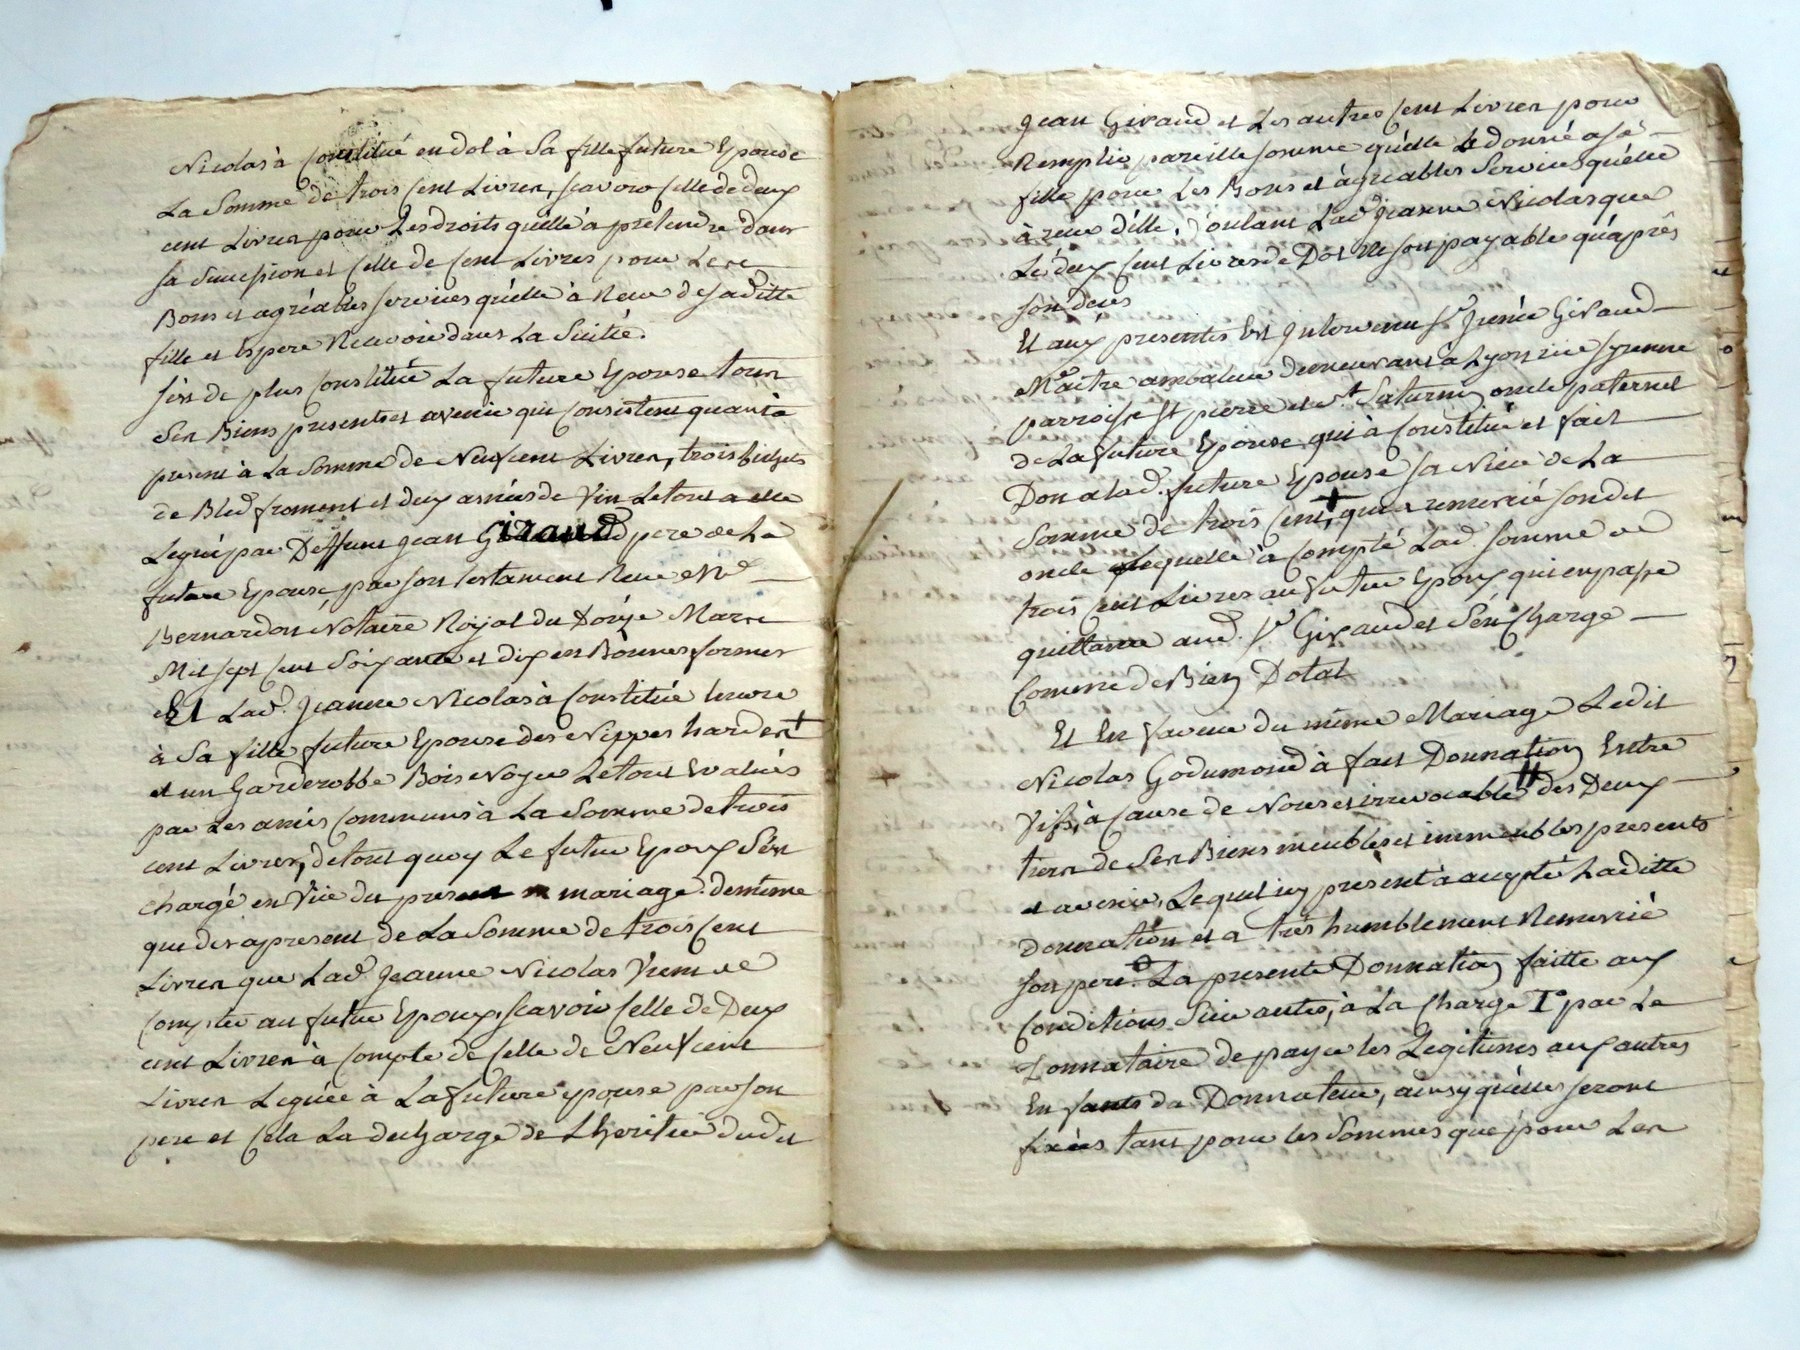 Nicolas à Constitué en dot à Sa fille future Epouse
La Somme de trois Cent Livres, scavoir Celle de deux
cent Livres pour Les droits quelle à prétendre dans
sa Succession et Celle de Cent Livres pour Les
Bons et agréables services quelle à Receu de saditte
fille et Espere Recevoir dans La Suitte.
sést de plus Constituée La future Epouse tous
Ses Biens presents et avenir qui Consistent quant à
present à La Somme de Neuf cent Livres, trois bichets
de Bled froment et deux asnées de Vin Le tout a elle
Legué par Deffunt jean Giraud pere de La
future Epouse par son testament Receu Me
Bernardon Notaire Royal du Mars
Mil sept cent Soixante et dix en Bonnes formes
Et Lad. Jeanne Nicolas à Constitué Encore
à Sa fille future Epouse des Nippes hardes +
et un Garderobbe Bois Noyer Le tout Evalués
par Les amis Communs à La Somme de trois
cent Livres, de tout quoy Le futur Epoux Sést
chargé en Vüe du present mariage. de même
que des apresent de La Somme de trois Cent
Livres que Lad. Jeanne Nicolas Vient de
Compter au futur Epoux, scavoir Celle de Deux
cent Livres à Compte de Celle de Neuf cent
Livres Leguée à La future epouse par son
pere et Cela La decharge de Lheritier dudit
Jean Giraud et Les autres Cent Livres pour
Remplir pareille somme quélle donné a sa
fille pour Les Bons et àgréables Services quélle
à receu d'élle. Voulant Lad. Jeanne Nicolas que
Les deux Cent Livres de Dot ne son payable qu'après
son deces
Et aux presentes Est Intervenu Sr Giraud
Maître demeurant à Lyon rüe
parroisse St pierre et St Saturnin oncle paternel
de La future Epouse qui à Constitué et fait
Don a lad. future Epouse sa Niece de La
Somme de trois Cent + qui a remercié sondit
oncle Lequel à Compté Lad. somme de
trois Cent Livres au futur Epoux qui en passe
quittance aud. Sr Giraud et Sén Charge
Comme de Bien Dotal
Et En faveur du même Mariage Ledit
Nicolas Godumond à fait Donnation Entre
Vifs, à Cause de Noces et irrevocable des Deux
tiers de Ses Biens meubles et immeubles presents
et avenir, Lequel icy present à accepté Laditte
donnation et a très humblement Remercié
son pere. La presente Donnation faitte aux
Conditions Suivantes, à La Charge 1° par Le
Donnataire de payer les Legitimes aux autres
Enfants du Donnateur, ainsy quélles seront
fixées tant pour les Sommes que pour Les